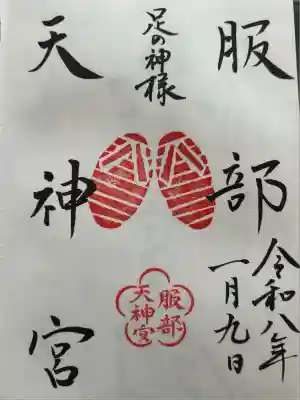 服部
天神宮
足の神様
令和八年
一月九日
服部
天神宮